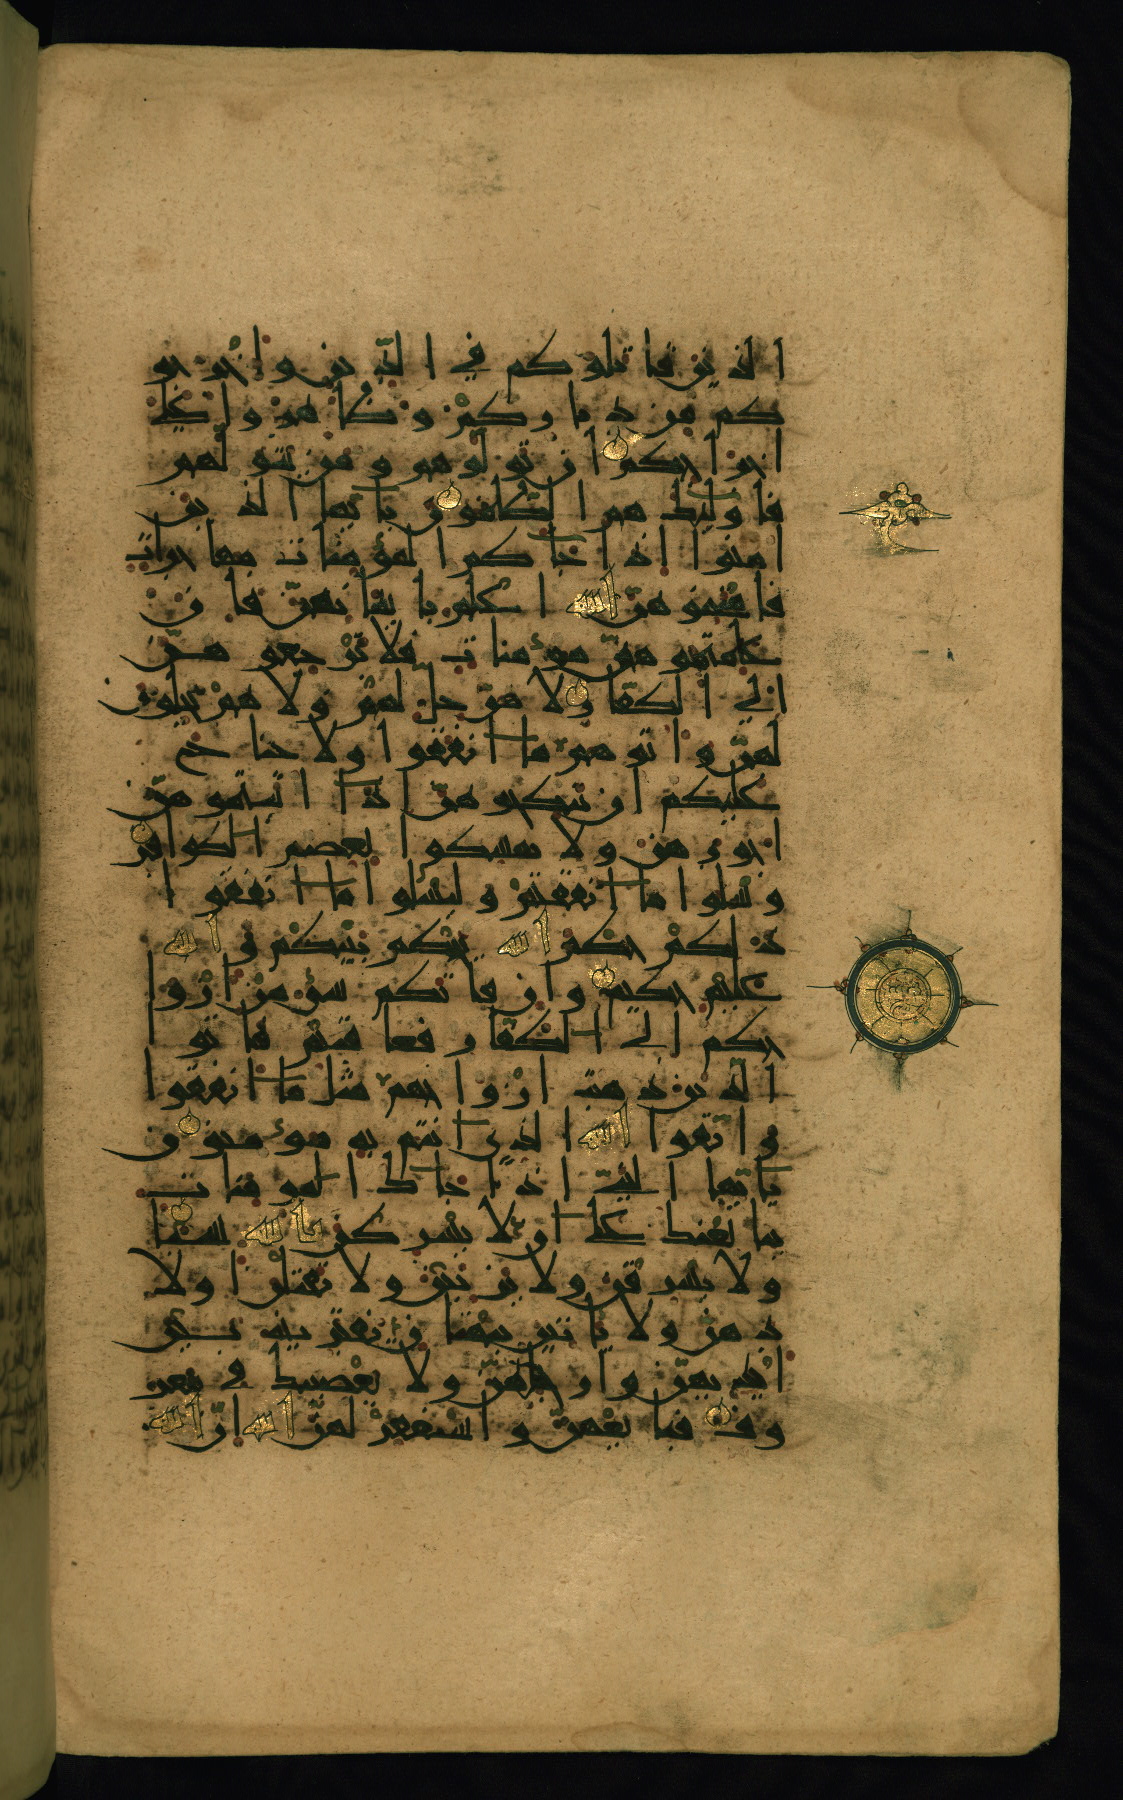 الذين قاتلوكم في الدين واخرجو
كم من دياركم وظاهروا على
اخراجكم ان تولوهم ومن يتولهم
فاولئك هم الظالمون يايها الذين
امنوا اذا جاءكم المؤمنات مهاجرات
فامتحنوهن الله اعلم بايمانهن فان
علمتموهن مؤمنات فلا ترجعوهن
الى الكفار لا هن حل لهم ولا هم يحلون
لهن واتوهم ما انفقوا ولا جناح
عليكم ان تنكحوهن اذا اتيتموهن
اجورهن ولا تمسكوا بعصم الكوافر
وسئلوا ما انفقتم وليسئلوا ما انفقوا
ذلكم حكم الله يحكم بينكم والله
عليم حكيم وان فاتكم شيء من ازوا
جكم الى الكفار فعاقبتم فاتوا
الذين ذهبت ازواجهم مثل ما انفقوا
واتقوا الله الذي انتم به مؤمنون
يايها النبي اذا جاءك المؤمنات
يبايعنك على ان لا يشركن بالله شيئا
ولا يسرقن ولا يزنين ولا يقتلن اولا
دهن ولا ياتين ببهتان يفترينه بين
ايديهن وارجلهن ولا يعصينك في معر
وف فبايعهن واستغفر لهن الله ان الله